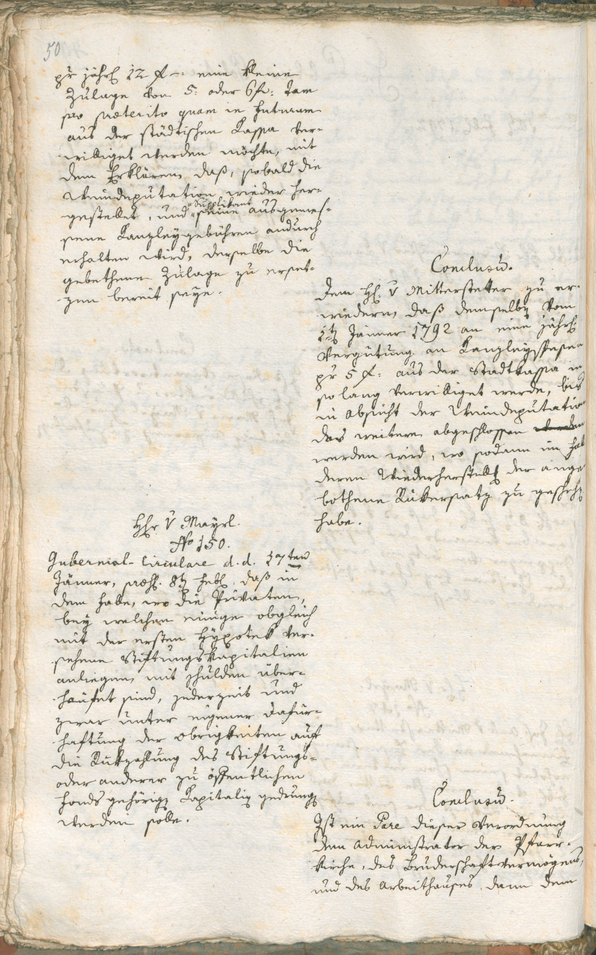 50
pr jährl 12 f – eine kleine
Zulage von 5: oder 6 f: tam
pro præterito quam in futurum
aus der städtischen Cassa ver-
williget werden möchte, mit
dem Erklären, daß, sobald die
Steuerdeputation wieder her-
gestellet, und ausgemes-
sene Kanzleygebühren andurch
erhalten wird, derselbe die
gebethene Zulage zu erset-
zen bereit seye.
Conclusu.
Dem H. v Mitterstetter zu er-
wiedern, daß demselben vom
1t Jänner 1792 an eine jährl
Vergütung an Kanzleyspesen
pr 5 f: aus der Stadtkassa in
so lang verwilliget werde, bis
in Absicht der
das weitere abgeschlossen
werden wird, wo sodann im Fal
deren Wiederherstellg der ange-
bothene Rükersatz zu geschehen
habe.
Hr v Mayrl.
No 150.
Gubernial-Circulare d. d. 17ten
Jänner, præs. 8t Febr. daß in
dem Falle, wo die Privaten,
bey welchen einige obgleich
mit der ersten Hypotek ver-
sehene Stiftungskapitalien
anliegen, mit Schulden über-
häufet sind, jederzeit und
zwar unter eigener Dafür-
haftung der Obrigkeiten auf
die Rükzahlung des Stiftungs-
oder anderer zu öffentlichen
Fonds gehörig Kapitalien gedrung
werden solle.
Conclusu.
Ist ein Pare dieser Verordnung
dem Administrator der Pfarr-
kirche, des Bruderschaftvermögens,
und des Arbeithauses dann dem